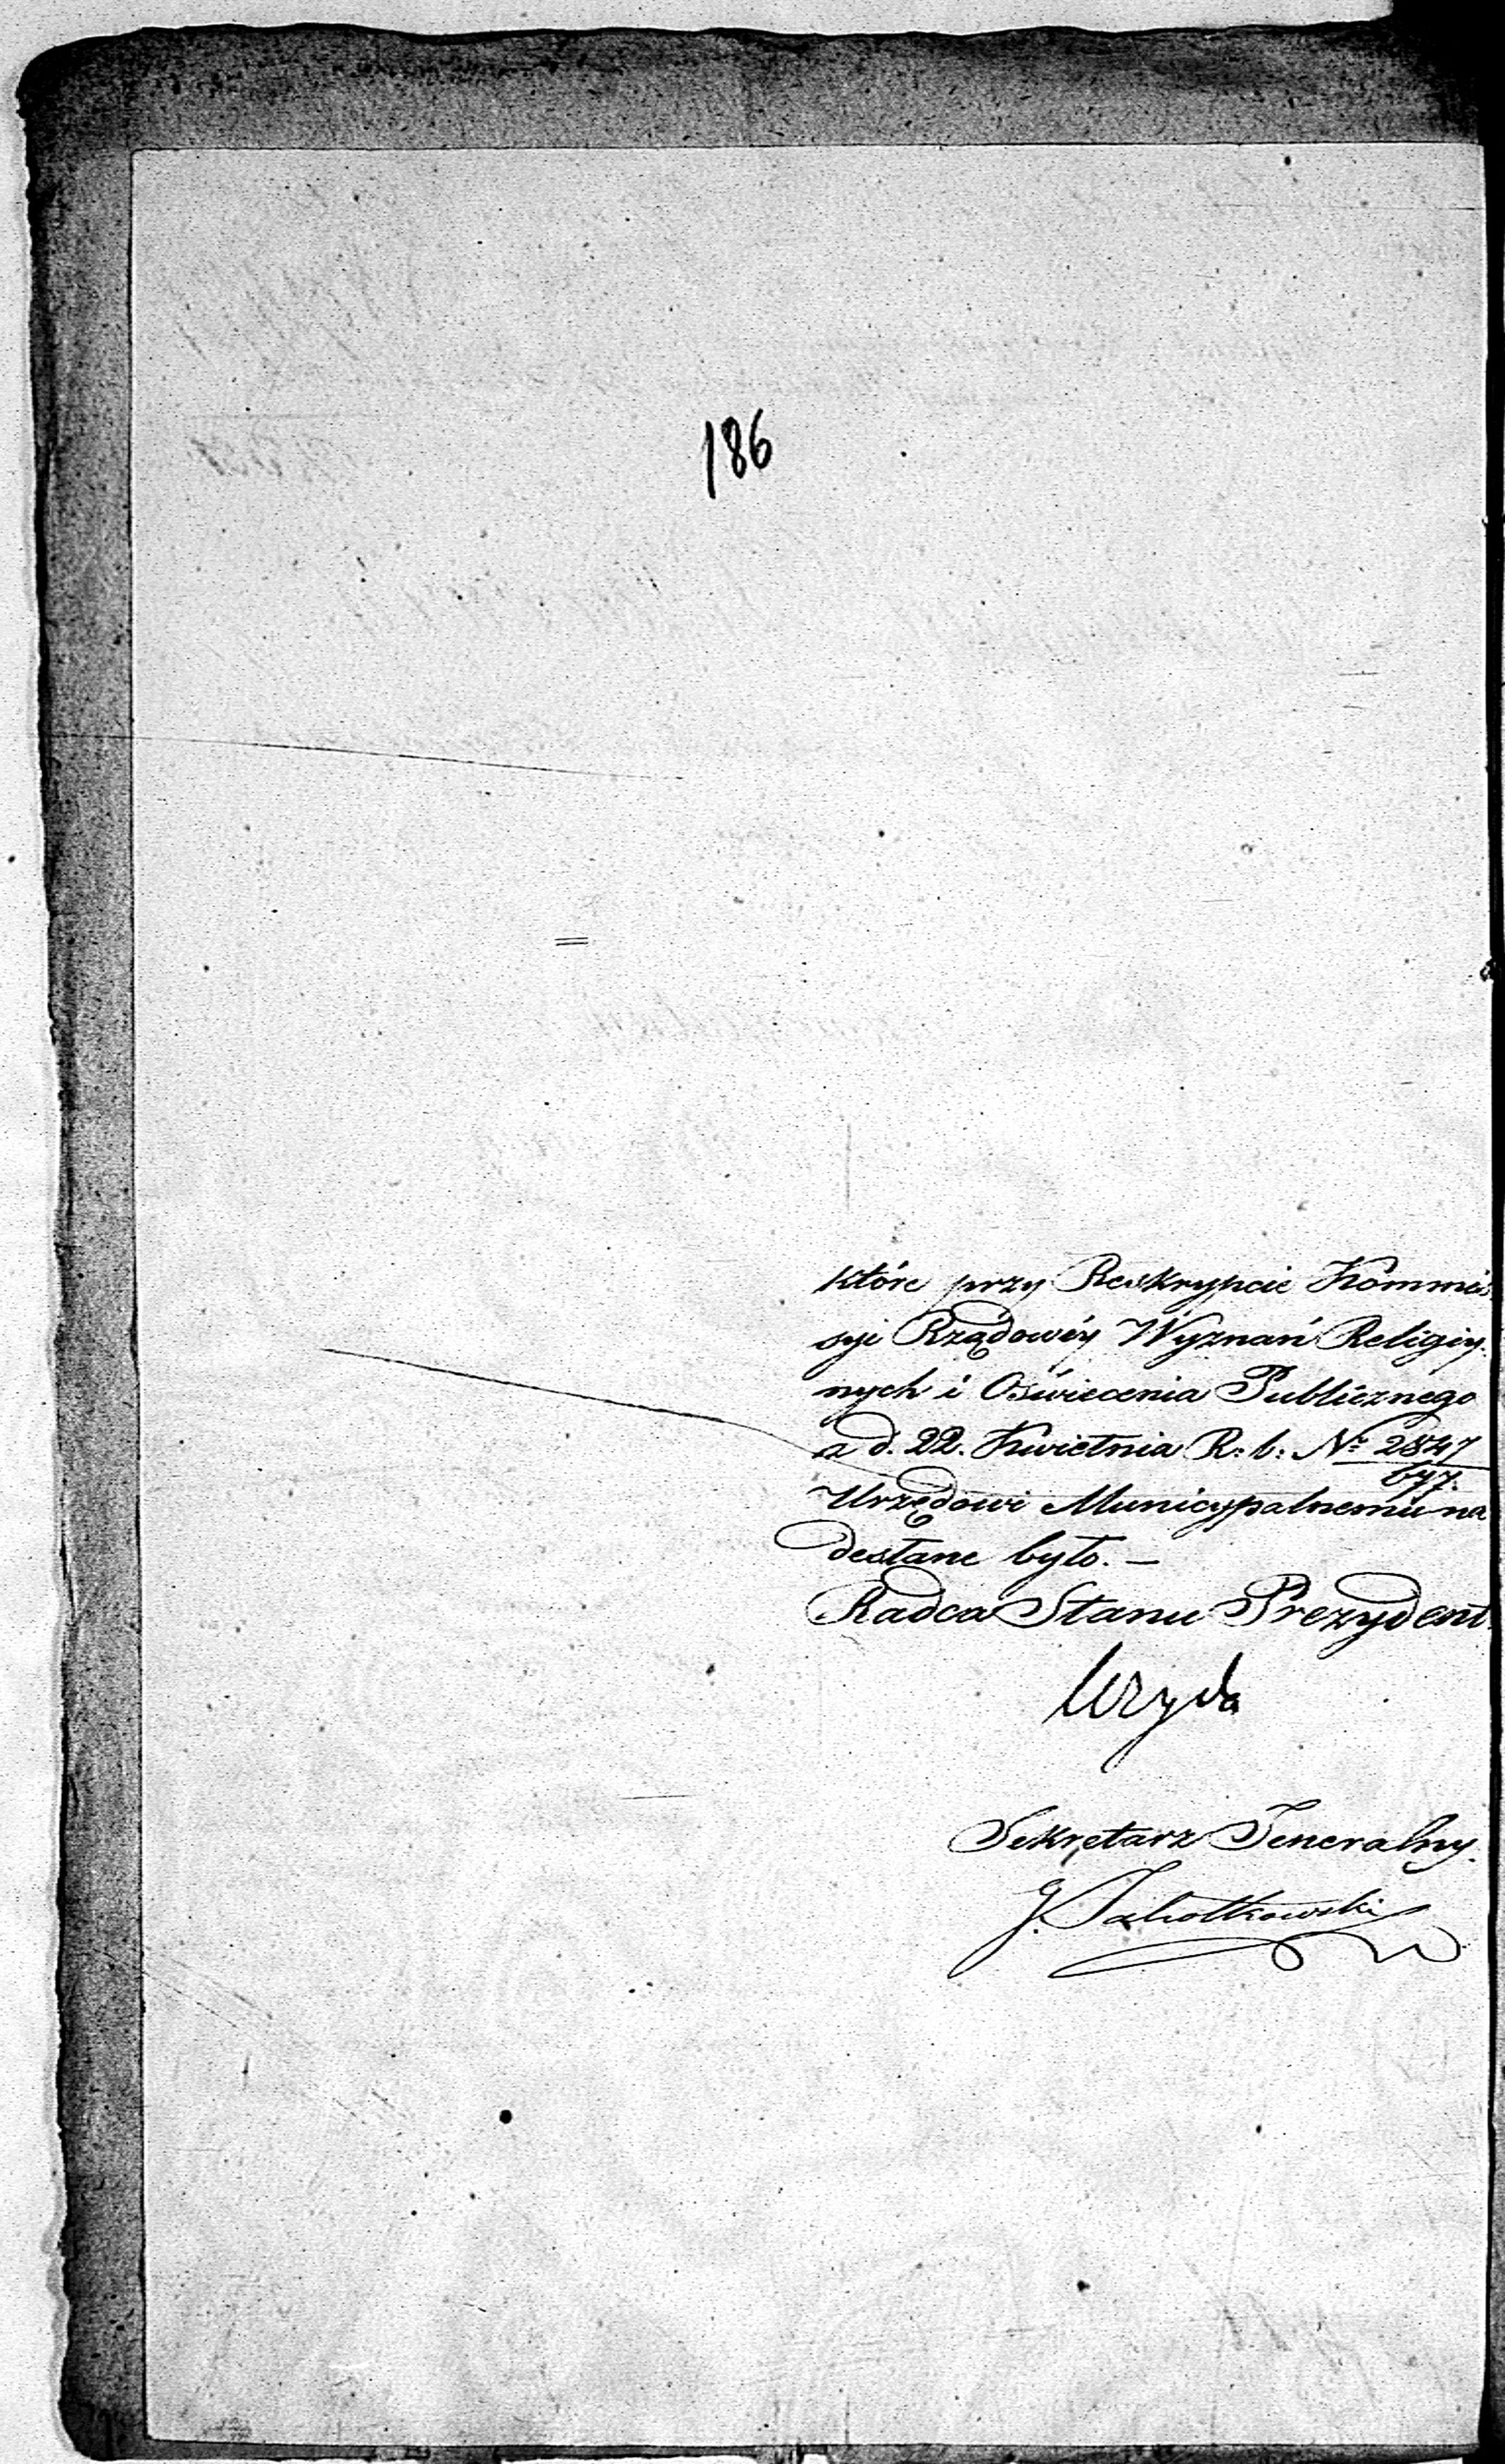 186
które przy Reskrypcie Kommis
syi Rządowéy Wyznań Religiy
nych i Oświecenia Publicznego
a d. 22. Kwietnia R: b: Nr 2847
647.
Urzędowi Municypalnemu na
desłane było. —
Radca Stanu Prezydent
Sekretarz Jeneralny.